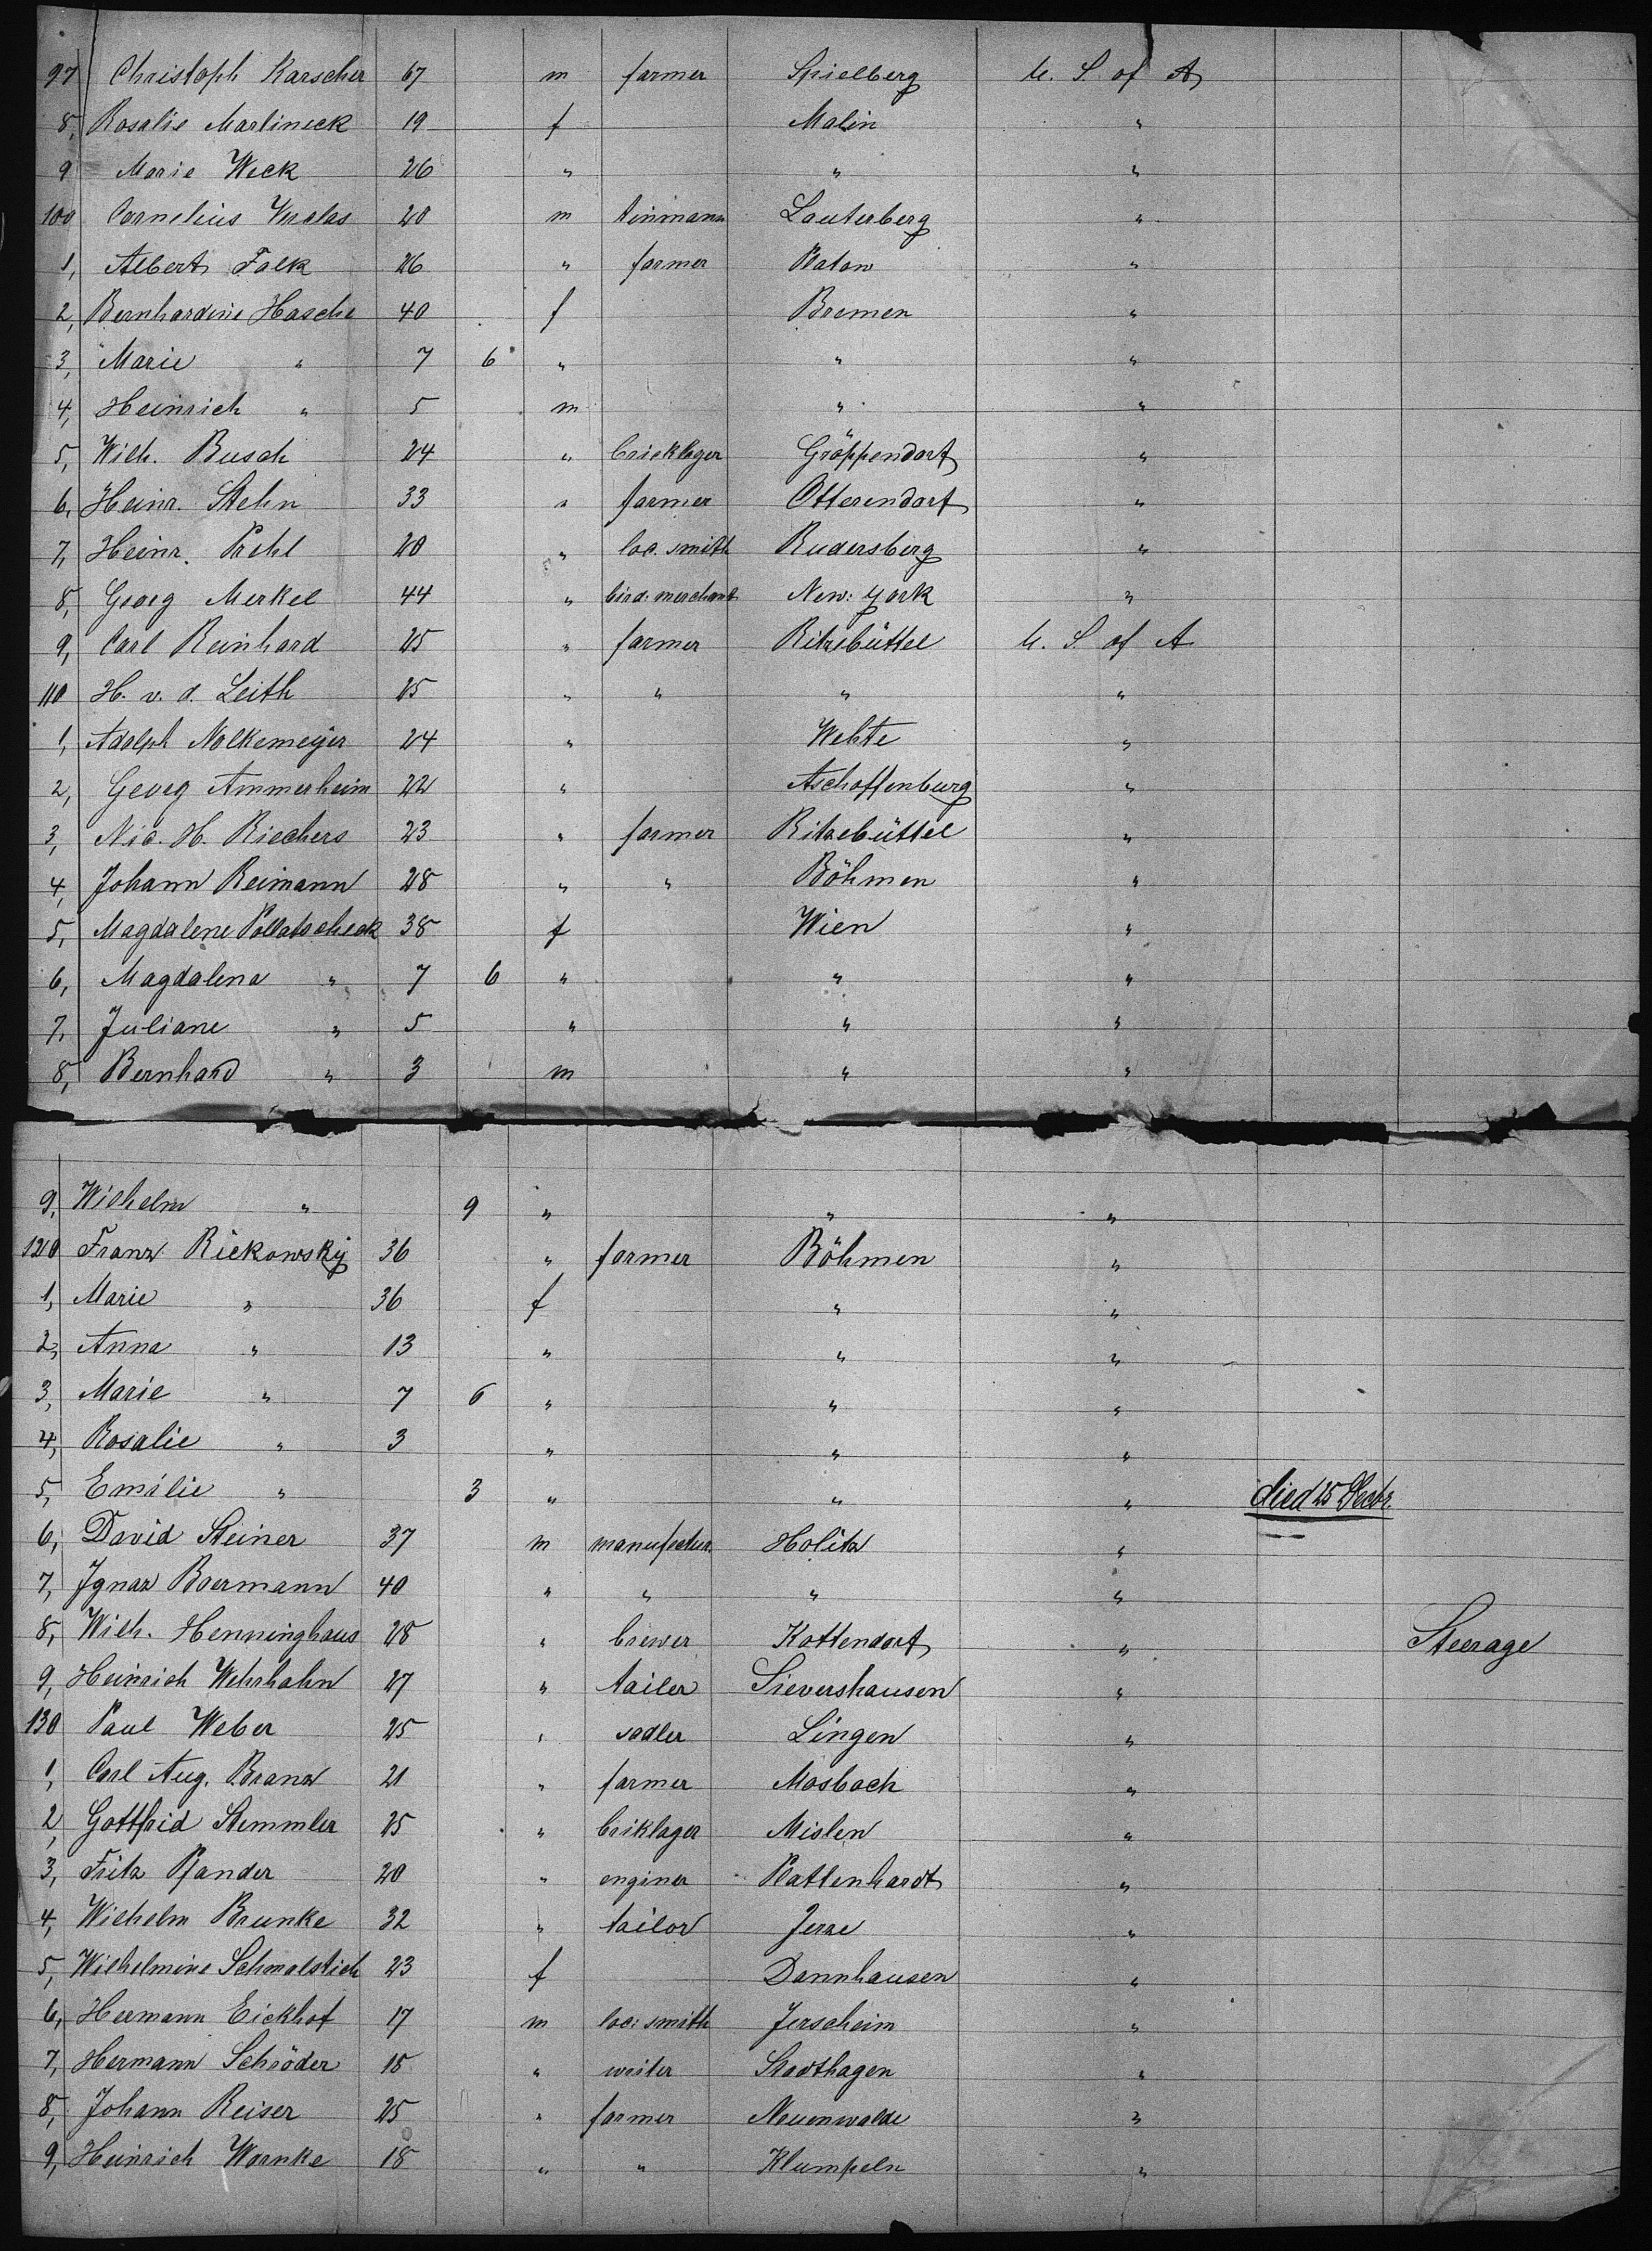 97 Christoph Karscher 67 m farmer Spielberg U. S. of A
8, Rosalie Martineck 19 f Malin "
9 Marie Weck 26 " " "
100 Cornelius 20 m tinmann Lauterberg "
1, Albert Falk 26 " farmer Platow "
2, Bernhardine Hasche 40 f Bremen "
3, Marie " 7 6 " " "
4, Heinrich " 5 m " "
5, Wilh. Busch 24 " bricklager Gröppendorf "
6, Heinr. Stehn 33 " farmer Otterendorf "
7, Heinr. Prehl 20 " loc. smith Rudersberg "
8, Georg Merkel 44 " bird: merchant New: York "
9, Carl Reinhard 25 " farmer Ritzebüttel U. S. of A
110 H. v. d. Leith 25 " " " "
1, Adolph Nolkemeyer 24 " Wehte "
2, Georg Ammerheim 22 " Aschaffenburg "
3, Nic. H. Riechers 23 " farmer Ritzebüttel "
4, Johann Reimann 28 " " Böhmen "
5, Magdalene Pollatscheck 38 f Wien "
6, Magdalena " 7 6 " " "
7, Juliane " 5 " " "
8, Bernhard " 3 m " "
9, Wilhelm " 9 " " "
120 Franz Rickowsky 36 " farmer Böhmen "
1, Marie " 36 f " "
2, Anna " 13 " " "
3, Marie " 7 6 " " "
4, Rosalie " 3 " " "
5, Emilie " 3 " " " died 25 Decbr.
6, David Steiner 37 m manufactur. Holitz "
7, Ignaz Boermann 40 " " " "
8, Wilh. Henninghaus 28 " brewer Kottendorf " Steerage
9, Heinrich Wehrhahn 27 " tailer Sievershausen "
130 Paul Weber 25 " sadler Lingen "
1, Carl Aug. Branz 21 " farmer Mosbach "
2, Gottfrid Stemmler 25 " briklager Mislen "
3, Fritz Pfander 20 " enginer Plattenhardt "
4, Wilhelm Brunke 32 " tailor Jerze "
5, Wilhelmine Schmalstich 23 f Dannhausen "
6, Hermann Eickhof 17 m loc: smith Jerscheim "
7, Hermann Schröder 18 " writer Stadthagen "
8, Johann Reiser 25 " farmer Neuenwalde "
9, Heinrich Warnke 18 " " Klumpeln "